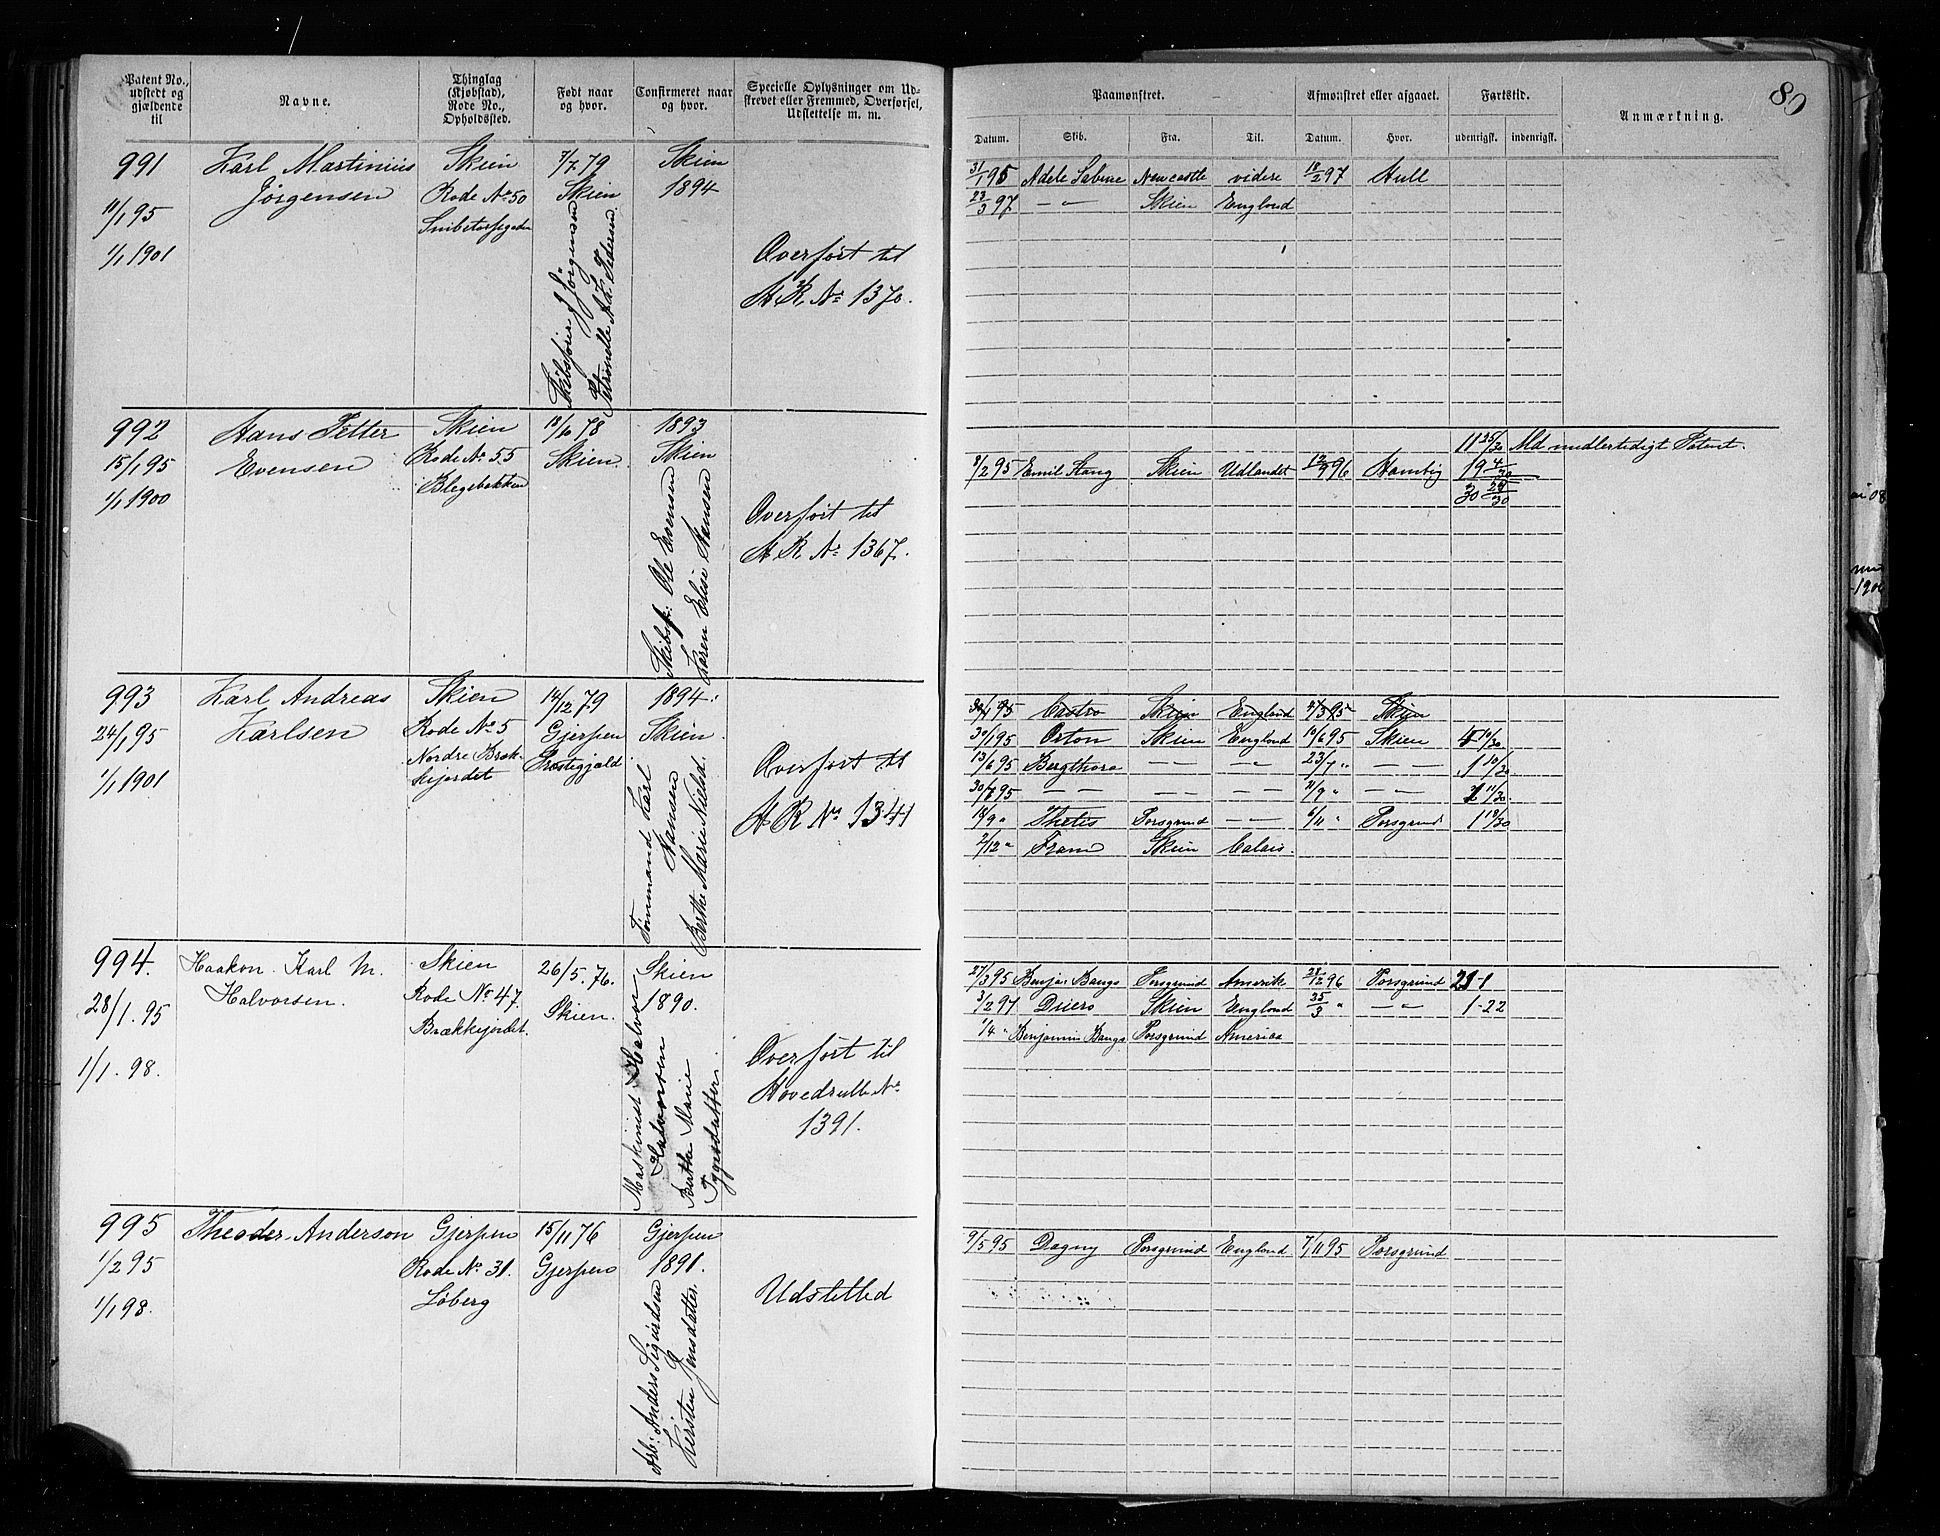 Patent No., udstedt og gjældende til
Navne.
Thinglag (Kjøbstad), Rode No., Opholdssted.
Født naar og hvor.
Confirmeret naar og hvor.
Specielle Oplysninger om Udskrevet eller Fremmed, Overførsel, Udslettelse m. m.
991
11/1 95
1/1 1901
Karl Martinius
Jörgensen
Skien
Rode No 50
Snibetorfsgaden
7/7 79
Skien
Skibsfører J. Jörgensen
Skien
1894
Overført til
A R. No 1370.
992
15/1 95
1/1 1900
Hans Petter
Evensen
Skien
Rode No 55
Blegebakken
18/10 78
Skien.
1893
Skien
Skibsf. Ole Evensen
Karen Elise Hansen
Overført til
A R. No 1367.
993
24/1 95
1/1 1901
Karl Andreas
Karlsen
Skien
Rode No 5
Nordre Bræk-
kejordet
14/12 79
Gjerpen
Præstegjæld
1894.
Skien.
Tømmermand Karl
Hansen
Berthe Marie
Overført til
A R No 1341
994.
28/1. 95
1/1. 98.
Haakon Karl M.
Halvorsen.
Skien
Rode No 47.
Brækkejordet.
26/5. 76.
Skien.
Skien
1890.
Maskinist Halvor
Halvorsen
Berthe Marie
Overført til
Hovedrulle No
1391.
995
1/2 95
1/1 98.
Theodor Anderson
Gjerpen
Rode No 31.
Löberg
15/11 76
Gjerpen
Gjerpen
1891.
Arb: Anders Sigurdsen
Kirsten Jensdatter
Udslettet
80
Paamønstret.
Afmønstret eller afgaaet.
Fartstid.
Anmærkning.
Datum.
Skib.
Fra.
Til.
Datum.
Hvor.
udenrigsk.
indenrigsk.
31/1 95 Adele Sabine Newcastle videre 18/2 97 Hull
23/3 97 — " — Skien England
11 25/30 Md midlertidigt Patent.
8/2 95 Emil Stang Skien Udlandet 12/9 96 Hamburg 19 4/30
30 29/30
30/1 95 Castro Skien England 2/3 95 Skien
30/1 95 Orton Skien England 10/6 95 Skien 4 10/30
13/6 95 Bergthora — — — " — 23/7 " — — 1 10/30
30/7 95 — — — — — — 11/9 " — — 1 11/30
18/9 " Thetis Porsgrund — — 6/11 " Porsgrund 1 18/30
2/12 " Fram Skien Calais.
27/3 95 Benjar. Bangs Porsgrund Amerik 28/12 96 Porsgrund 21-1
3/2 97 Duero Skien England 25/3 " — " — 1-22
1/4 " Benjamin Bangs Porsgrund America
9/5 95 Dagny Porsgrund England 7/11 95 Porsgrund